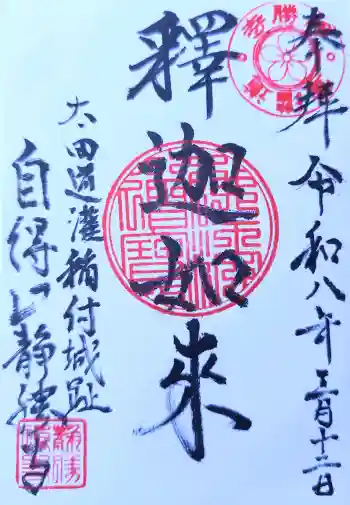 奉拝 令和八年三月十二日
釋迦如來
太田道灌稲付城趾
自得山静勝寺